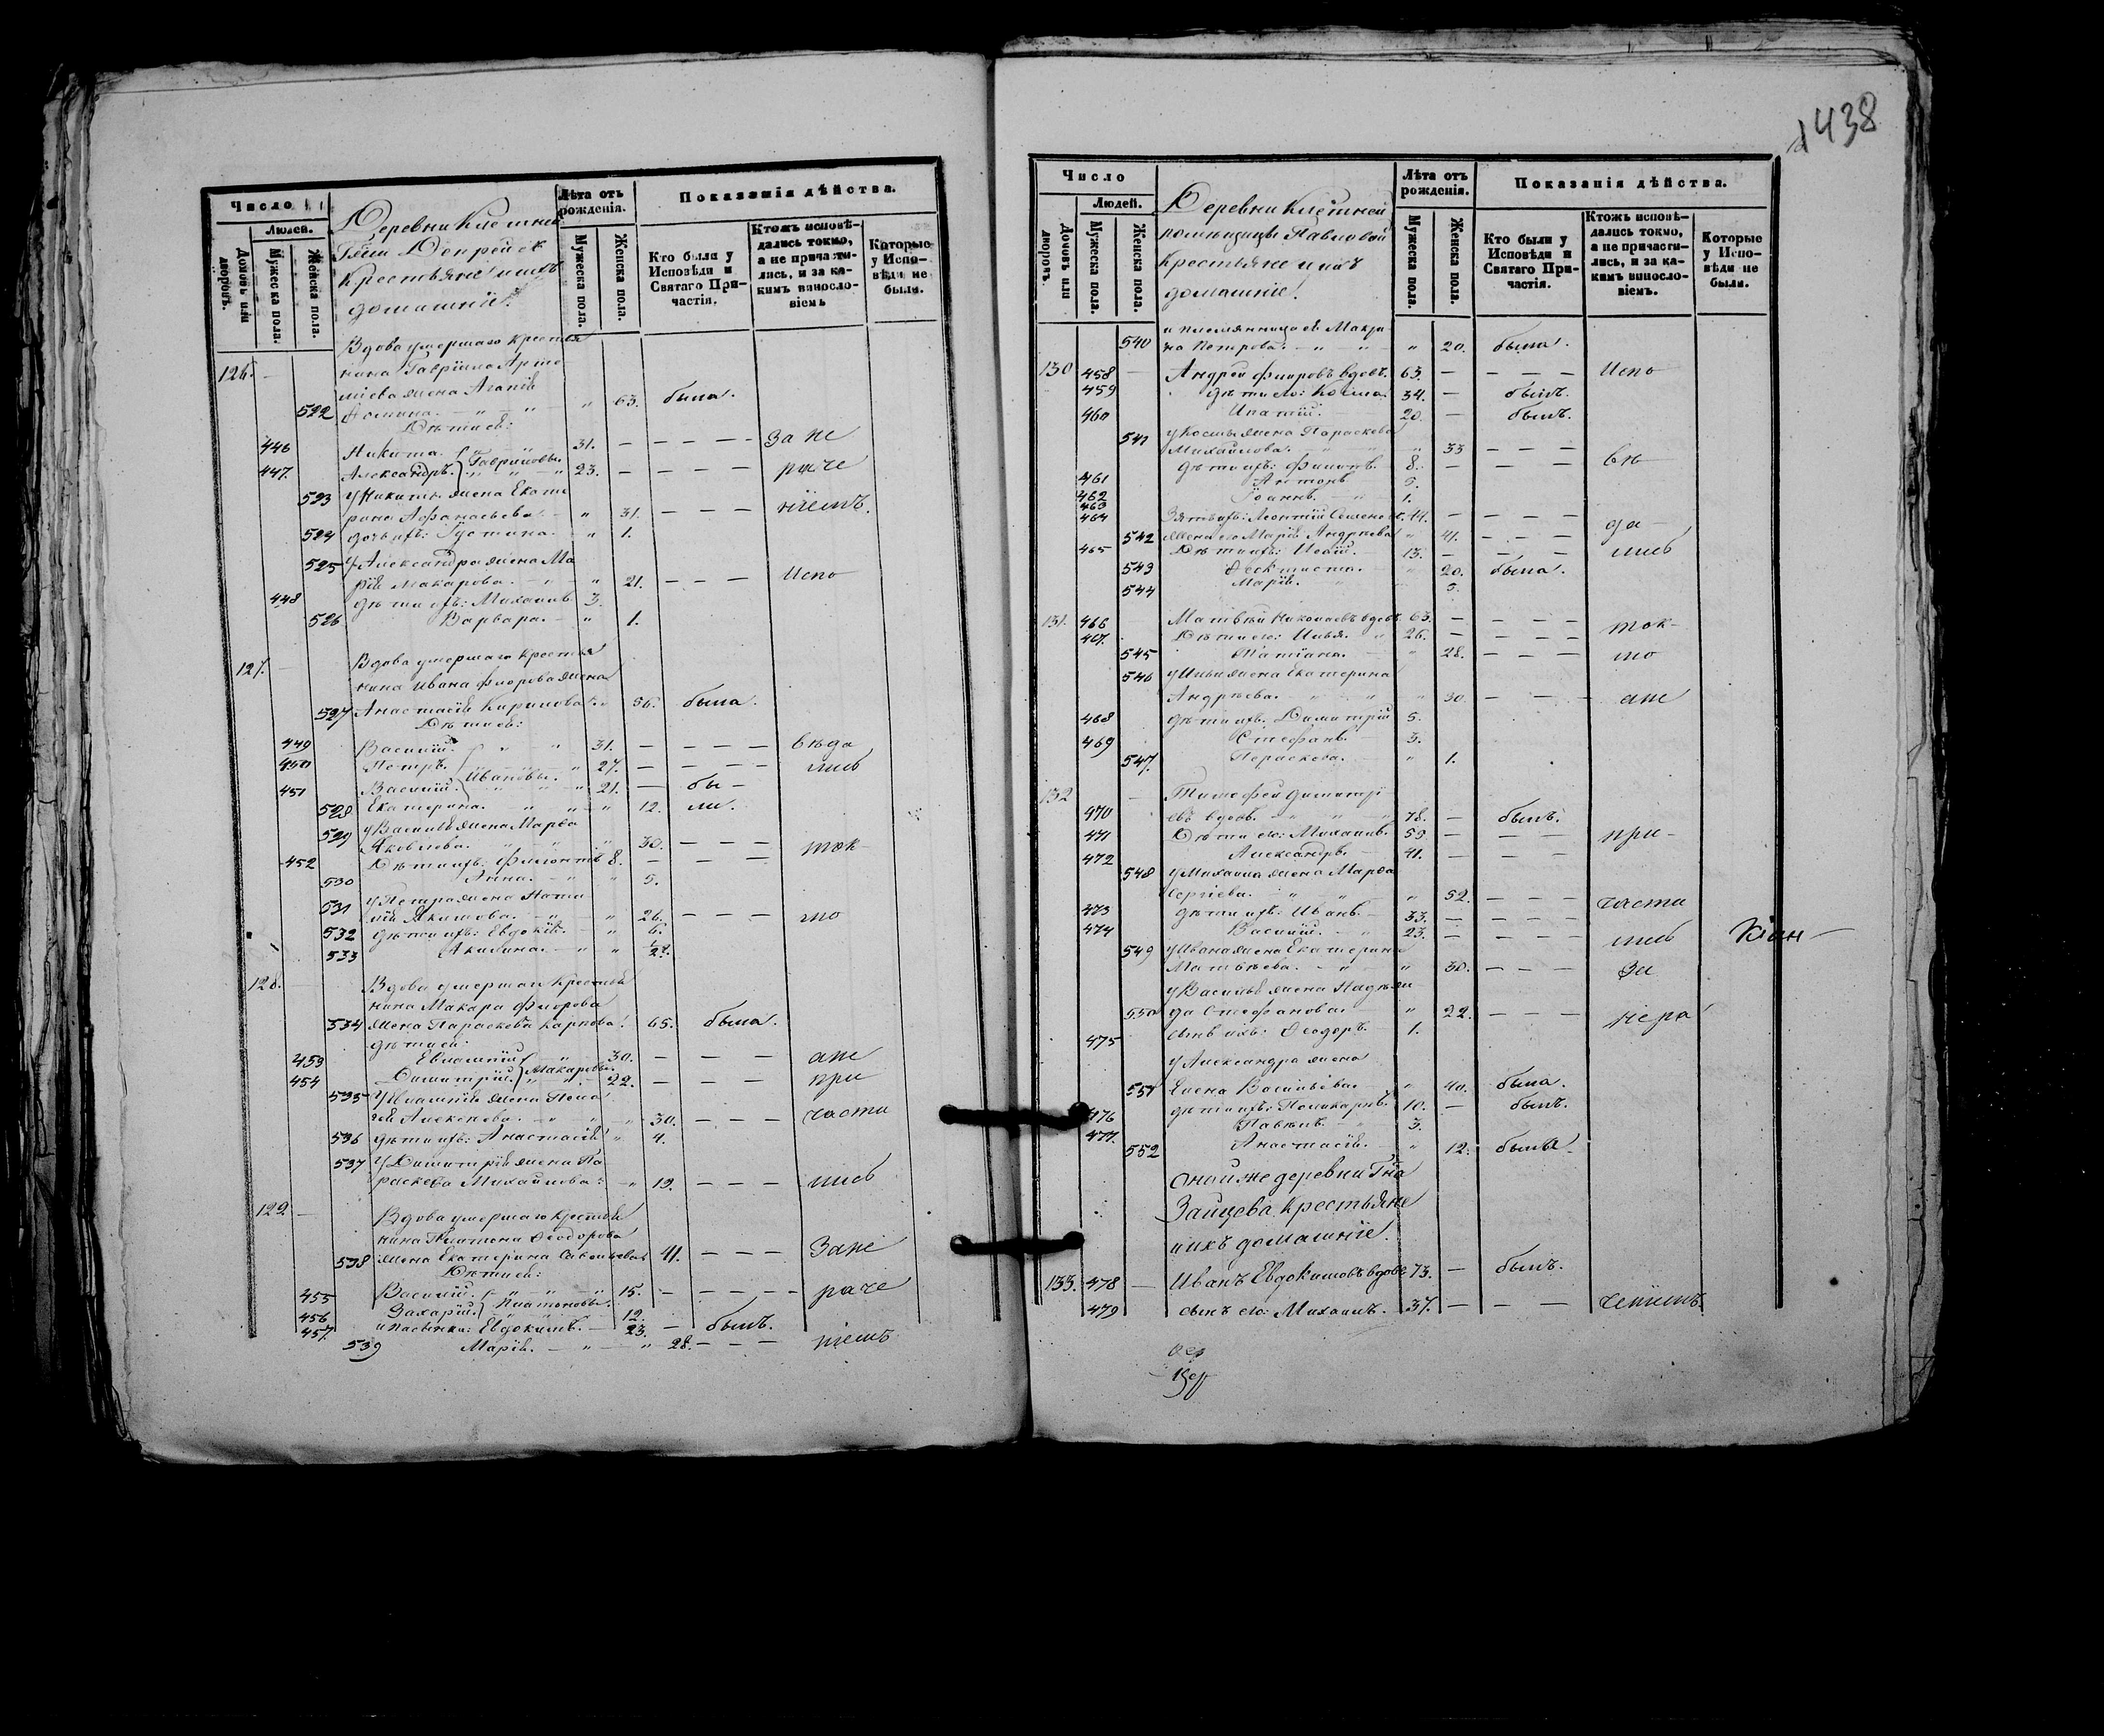 1438
Число
Людей.
Домовъ или дворовъ.
Мужеска пола.
Женска пола.
Деревни Клетней
Крестьяне и ихъ
домашніе
Лѣта отъ рожденія.
Мужеска пола.
Женска пола.
Показанія дѣйства.
Кто были у Исповѣди и Святаго Причастія.
Ктожъ исповѣ-
дались токмо,
а не причасти-
лись, и за ка-
кимъ винosло-
віемъ
Которые
у Испо-
вѣди не
были.
Вдова умершаго крестья
126. нина Гавріила Арте
міева жена Агапія
522 Ѳомина. " 63. была.
Дѣти ея:
446 Никита. 31. — — — — за не
447. Александръ. } Гавріиловы. 23. — — — — раче
523 У Никиты жена Екате
рина Аѳанасьева " 31. — — — ніемъ.
524 дочь ихъ: Іустина. " 1.
525 У Александра жена Ма
рія Макарова. " 21. — — — Испо
448 дѣти ихъ: Михаилъ 3.
526 Варвара. " 1.
127. Вдова умершаго крестья
нина Ивана Флорова жена
527 Анастасія Кирилова. " 56. была.
Дѣти ея:
449 Василій. 31. — — — — вѣда
450 Петръ. } Ивановы. 27. — — — — лись
451 Василій. 21. — бы-
528 Екатерина. " 12. ли.
529 У Василья жена Марѳа
Яковлева. " 30. — — — ток
452 Дѣти ихъ: Филонтъ 8. — — —
530 Анна. " 5.
531 У Петра жена Ната
лія Якимова. " 26. — — — мо
532 дѣти ихъ: Евдокія. " 6.
533 Акилина. "
128. Вдова умершаго крестья
нина Макара Флорова
534 жена Параскева Карпова. 65. была.
дѣти ея:
453 Евлампій 30. — — — ане
454 Димитрій. } Макаровы. 22. — — — при
535 У Евлампія жена Пела
гея Алексѣева. " 30. — — — части
536 дѣти ихъ: Анастасія " 4.
537 У Димитрія жена Па
раскева Михайлова. " 19. — — — лись
129. Вдова умершаго крестья
нина Платона Ѳеодорова
538 жена Екатерина Савельева 41. — — — Зане
Дѣти ея:
455 Василій. 15. — — — — раче
456 Захарій. } Платоновы. 12.
457. и пасынки: Евдокимъ. 23. — былъ.
539 Марія. " 28. — — — ніемъ
Число
Людей.
Домовъ или дворовъ.
Мужеска пола.
Женска пола.
Деревни Клетней
помѣщицы Павловой
крестьяне и ихъ
домашніе.
Лѣта отъ рожденія.
Мужеска пола.
Женска пола.
Показанія дѣйства.
Кто были у
Исповѣди и
Святаго При-
частія.
Ктожъ исповѣ-
дались токмо,
а не причасти-
лись, и за ка-
кимъ винosло-
віемъ.
Которые
у Испо-
вѣди не
были.
и племянница ея Макри
540 на Петрова. " 20. была.
130 458 — Андрей Флоровъ вдовъ. 63. — — — — Испо
459 дѣти его: Косма 34. — былъ.
460 Ипатій. 20. — былъ.
541 У Космы жена Параскева
Михайлова. " 33 — — —
461 дѣти ихъ: Филипъ. 8. — — — вѣ
462 Антонъ 5.
463 Іоаннъ. 1.
464 Зять ихъ: Леонтій Семеновъ. 44. — — — — да
542 жена его Марія Андреева " 41. — — —
465 Дѣти ихъ: Исаій. 13. — — — лись
543 Ѳеоктиста. " 20. была.
544 Марія. " 5.
131. 466 Матвѣй Николаевъ вдовъ 63. — — — —
467. Дѣти его: Илья. 26. — — — — ток-
545 Татіана. " 28. — — — мо
546 У Ильи жена Екатерина
Андреева. " 30 — — — ане
468 дѣти ихъ. Димитрій 5.
469 Стефанъ. 3.
547. Параскева. " 1.
132 — Тимофей Димитрі
470 евъ вдовъ. 78. — былъ.
471 Дѣти его: Михаилъ. 55. — — — — при-
472 Александръ. 41. — — —
548 У Михаила жена Марѳа
Сергіева. " 52. — — — части
473 дѣти ихъ: Иванъ. 33. — — — —
474 Василій. 23. — — — — лись
549 У Ивана жена Екатерина
Матвѣева. " 30. — — — За
У Василья жена Надеж
550 да Стефанова. " 22. — — — нера
475 сынъ ихъ: Ѳеодоръ. 1.
У Александра жена
551 Елена Васильева. " 40. была.
476 дѣти ихъ: Поликарпъ. 10. — былъ.
477. Павелъ. 3.
552 Анастасія. " 12. была.
Оной же деревни Гна
Зайцева крестьяне
и ихъ домашніе.
133. 478 — Иванъ Евдокимовъ вдовъ 73. — былъ.
479 сынъ его: Михаилъ. 37. — — — ченіемъ.